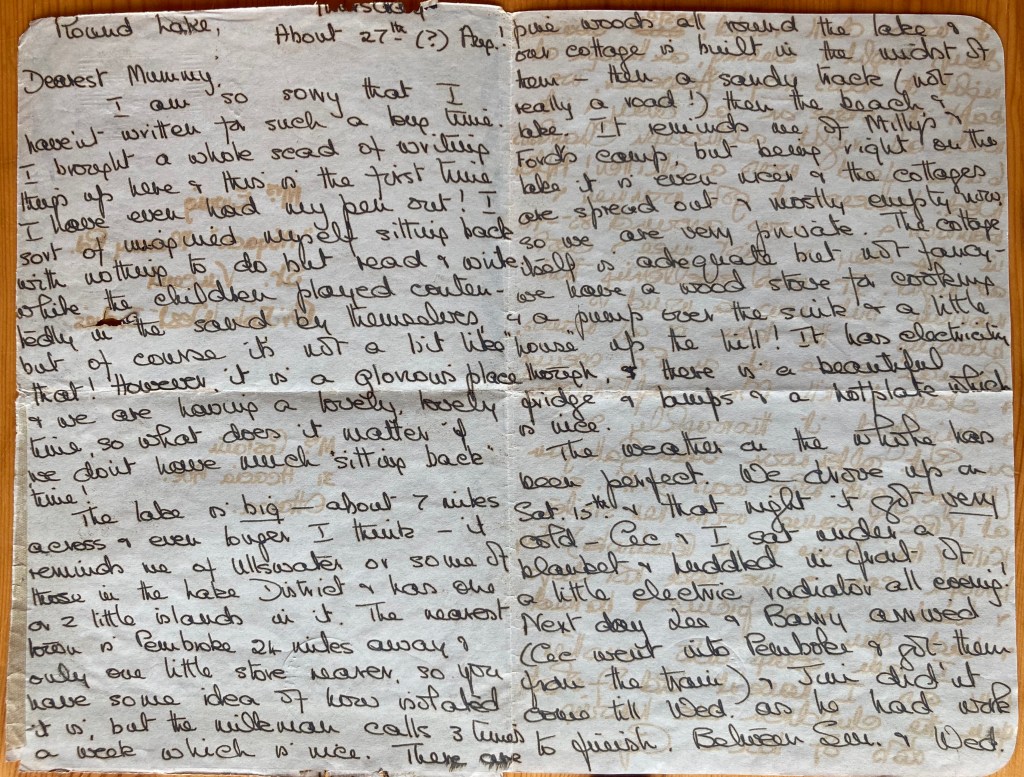 Thursday
Round Lake,
About 27th (?) Aug.!
Dearest Mummy,
I am so sorry that I
haven't written for such a long time.
I brought a whole scad of writing
things up here & this is the first time
I have even had my pen out! I
sort of imagined myself sitting back
with nothing to do but read & write
while the children played conten-
tedly in the sand by themselves,
but of course it's not a bit like
that! However, it is a glorious place
& we are having a lovely, lovely
time, so what does it matter if
we don't have much "sitting back"
time!
The lake is big – about 7 miles
across & even longer I think – it
reminds me of Ullswater or some of
those in the Lake District & has one
or 2 little islands in it. The nearest
town is Pembroke 24 miles away &
only one little store nearer, so you
have some idea of how isolated
it is, but the milkman calls 3 times
a week which is nice. There are
pine woods all round the lake &
our cottage is built in the midst of
them – then a sandy track (not
really a road!) then the beach &
lake. It reminds me of
Fords camp, but being right on the
lake it is even nicer & the cottages
are spread out & mostly empty now
so we are very private. The cottage
itself is adequate but not fancy –
we have a wood stove for cooking
& a pump over the sink & a little
"house" up the hill! It has electricity
though, & there is a beautiful
fridge & lamps & a hotplate which
is nice.
The weather on the whole has
been perfect. We drove up on
Sat. 15th & that night it got very
cold – Cec & I sat under a
blanket & huddled in front of
a little electric radiator all evening!
Next day Lee & Barry arrived
(Cec went into Pembroke & got them
from the train) & Jim didn't
come till Wed. as he had work
to finish. Between Sun. & Wed.